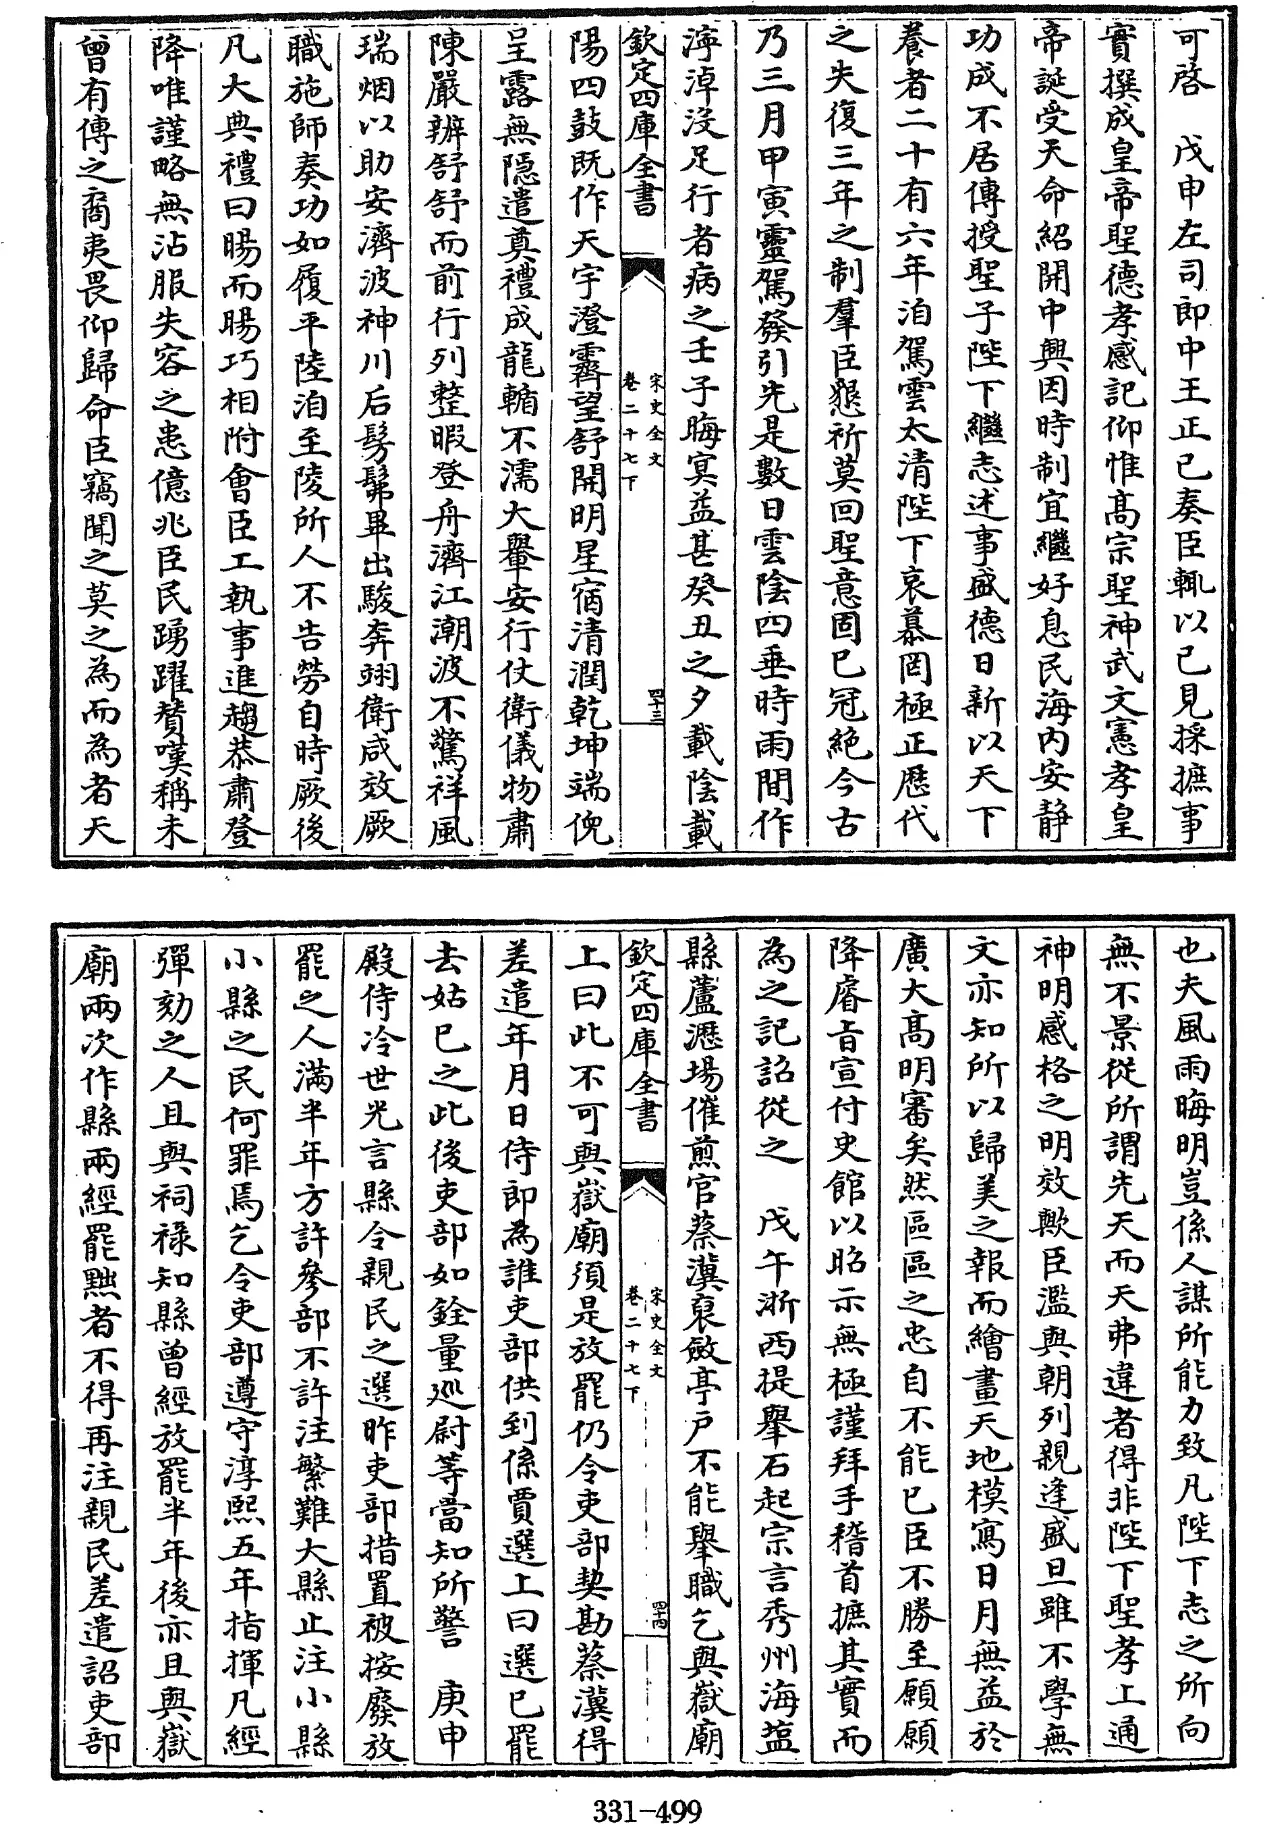 可啓　戊申左司郎中王正已奏臣輒以已見採摭事
實撰成皇帝聖德孝感記仰惟髙宗聖神武文憲孝皇
帝誕受天命紹開中興因時制宜繼好息民海内安静
功成不居傳授聖子陛下繼志述事盛德日新以天下
養者二十有六年洎駕雲太清陛下哀慕罔極正歴代
之失復三年之制羣臣懇祈莫回聖意固已冠絶今古
乃三月甲寅靈駕發引先是數日雲陰四垂時雨間作
濘淖沒足行者病之壬子晦㝠益甚癸丑之夕載陰載
欽定四庫全書
宋史全文
卷二十七下
四十三
陽四鼓既作天宇澄霽望舒開明星宿清潤乾坤端倪
呈露無隠遣奠禮成龍輴不濡大轝安行仗衛儀物肅
陳嚴辦舒舒而前行列整暇登舟濟江潮波不驚祥風
瑞烟以助安濟波神川后髣髴畢出駿奔翊衛咸效厥
職施師奏功如履平陸洎至陵所人不告勞自時厥後
凡大典禮曰暘而暘巧相附會臣工執事進趨恭肅登
降唯謹略無沾服失容之患億兆臣民踴躍賛嘆稱未
曾有傳之裔夷畏仰歸命臣竊聞之莫之為而為者天
也夫風雨晦明豈係人謀所能力致凡陛下志之所向
無不景從所謂先天而天弗違者得非陛下聖孝上通
神明感格之明效歟臣濫與朝列親逢盛旦雖不學無
文亦知所以歸美之報而繪畫天地模寫日月無益於
廣大髙明審矣然區區之忠自不能已臣不勝至願願
降睿㫖宣付史館以昭示無極謹拜手稽首摭其實而
為之記詔從之　戊午浙西提舉石起宗言秀州海盐
縣蘆瀝場催煎官蔡㵄裒斂亭戸不能舉職乞與嶽廟
欽定四庫全書
宋史全文
卷二十七下
四十四
上曰此不可與嶽廟須是放罷仍令吏部契勘蔡㵄得
差遣年月日侍郎為誰吏部供到係賈選上曰選已罷
去姑已之此後吏部如銓量廵尉等當知所警　庚申
殿侍冷世光言縣令親民之選昨吏部措置被按廢放
罷之人滿半年方許參部不許注繁難大縣止注小縣
小縣之民何罪焉乞令吏部遵守淳熙五年指揮凡經
彈劾之人且與祠禄知縣曾經放罷半年後亦且與嶽
廟兩次作縣兩經罷黜者不得再注親民差遣詔吏部
331-499